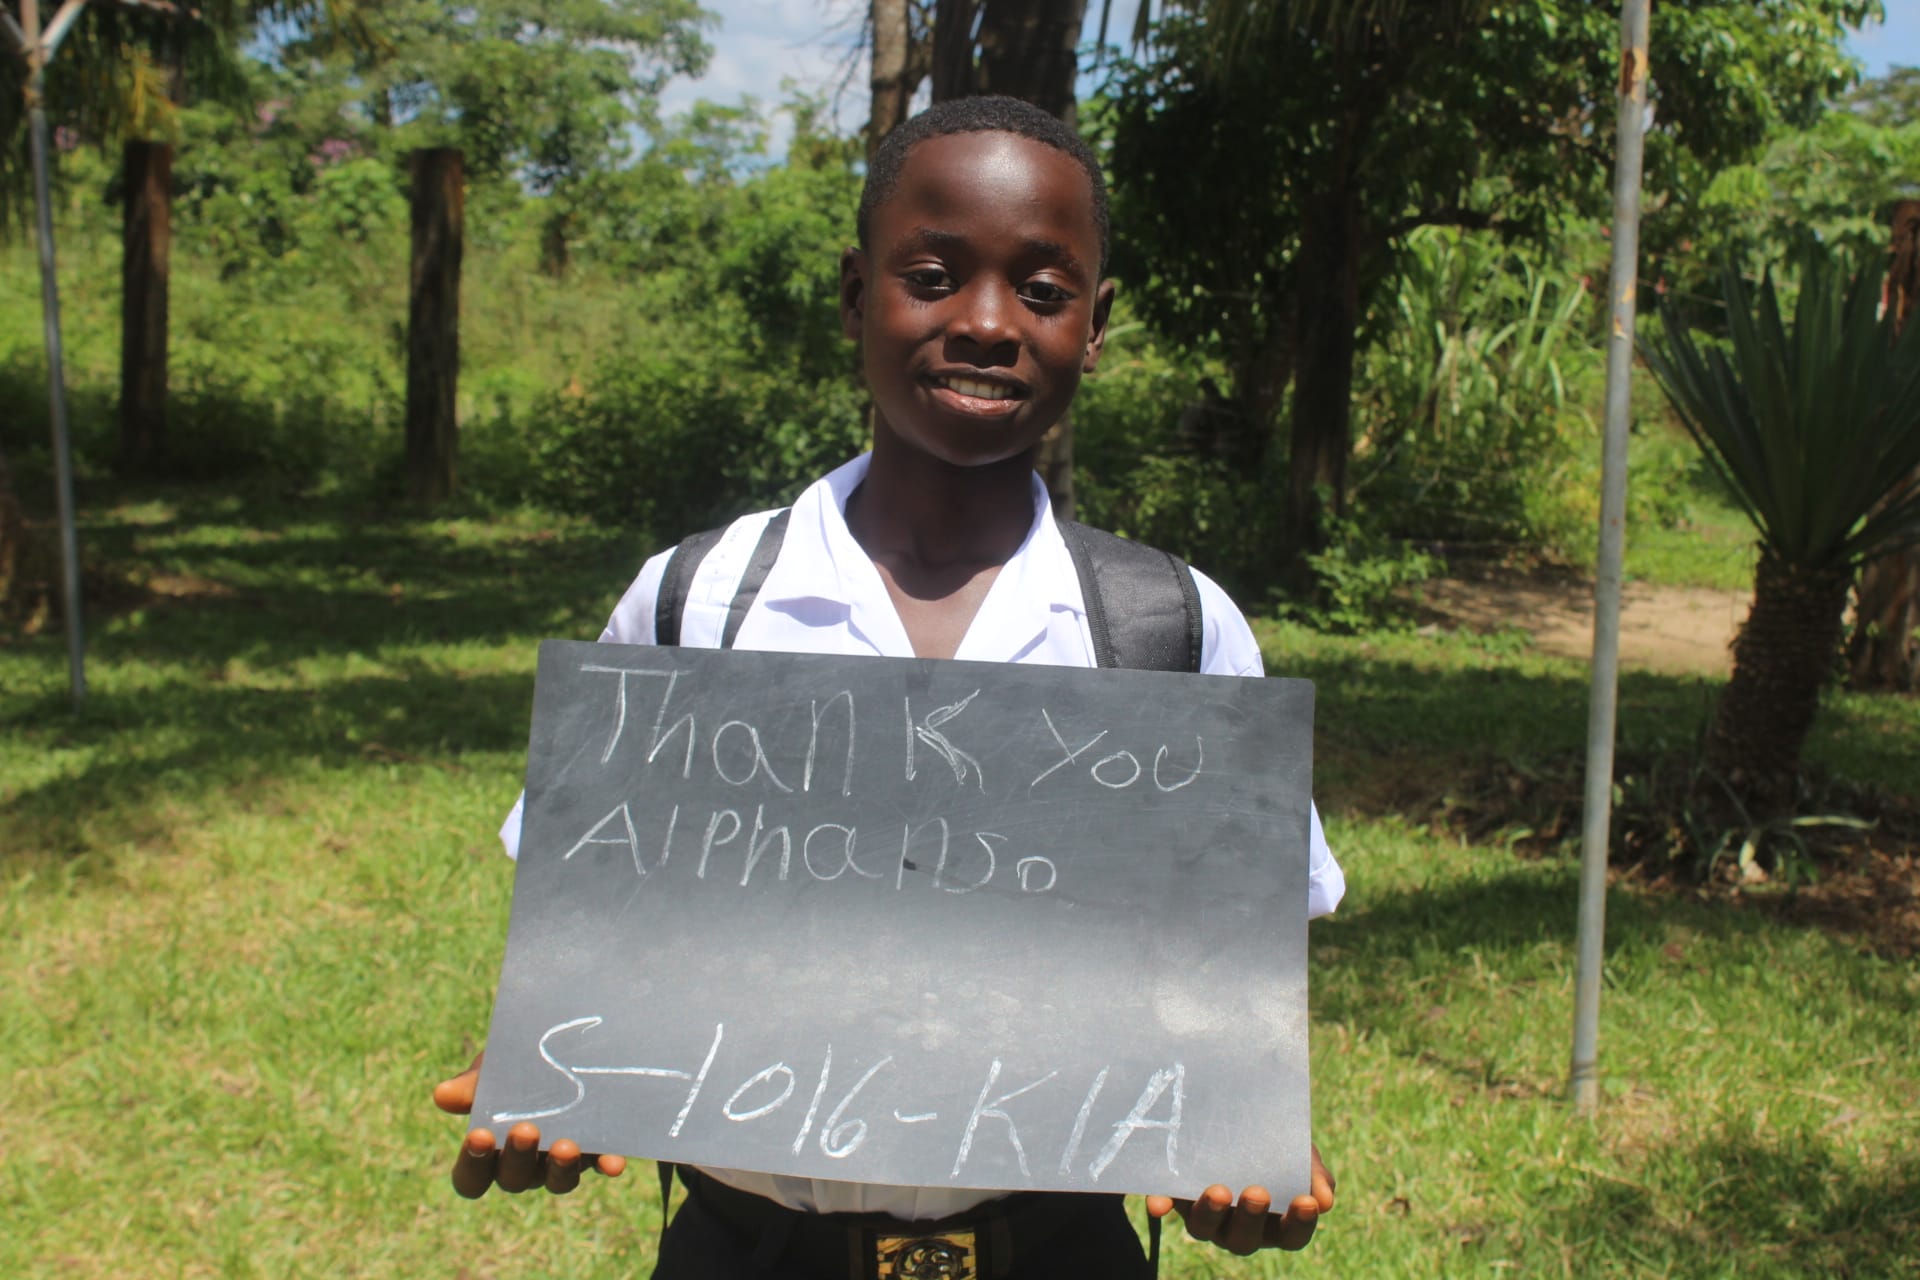 Thank you
Alphanso
S-1016-KIA